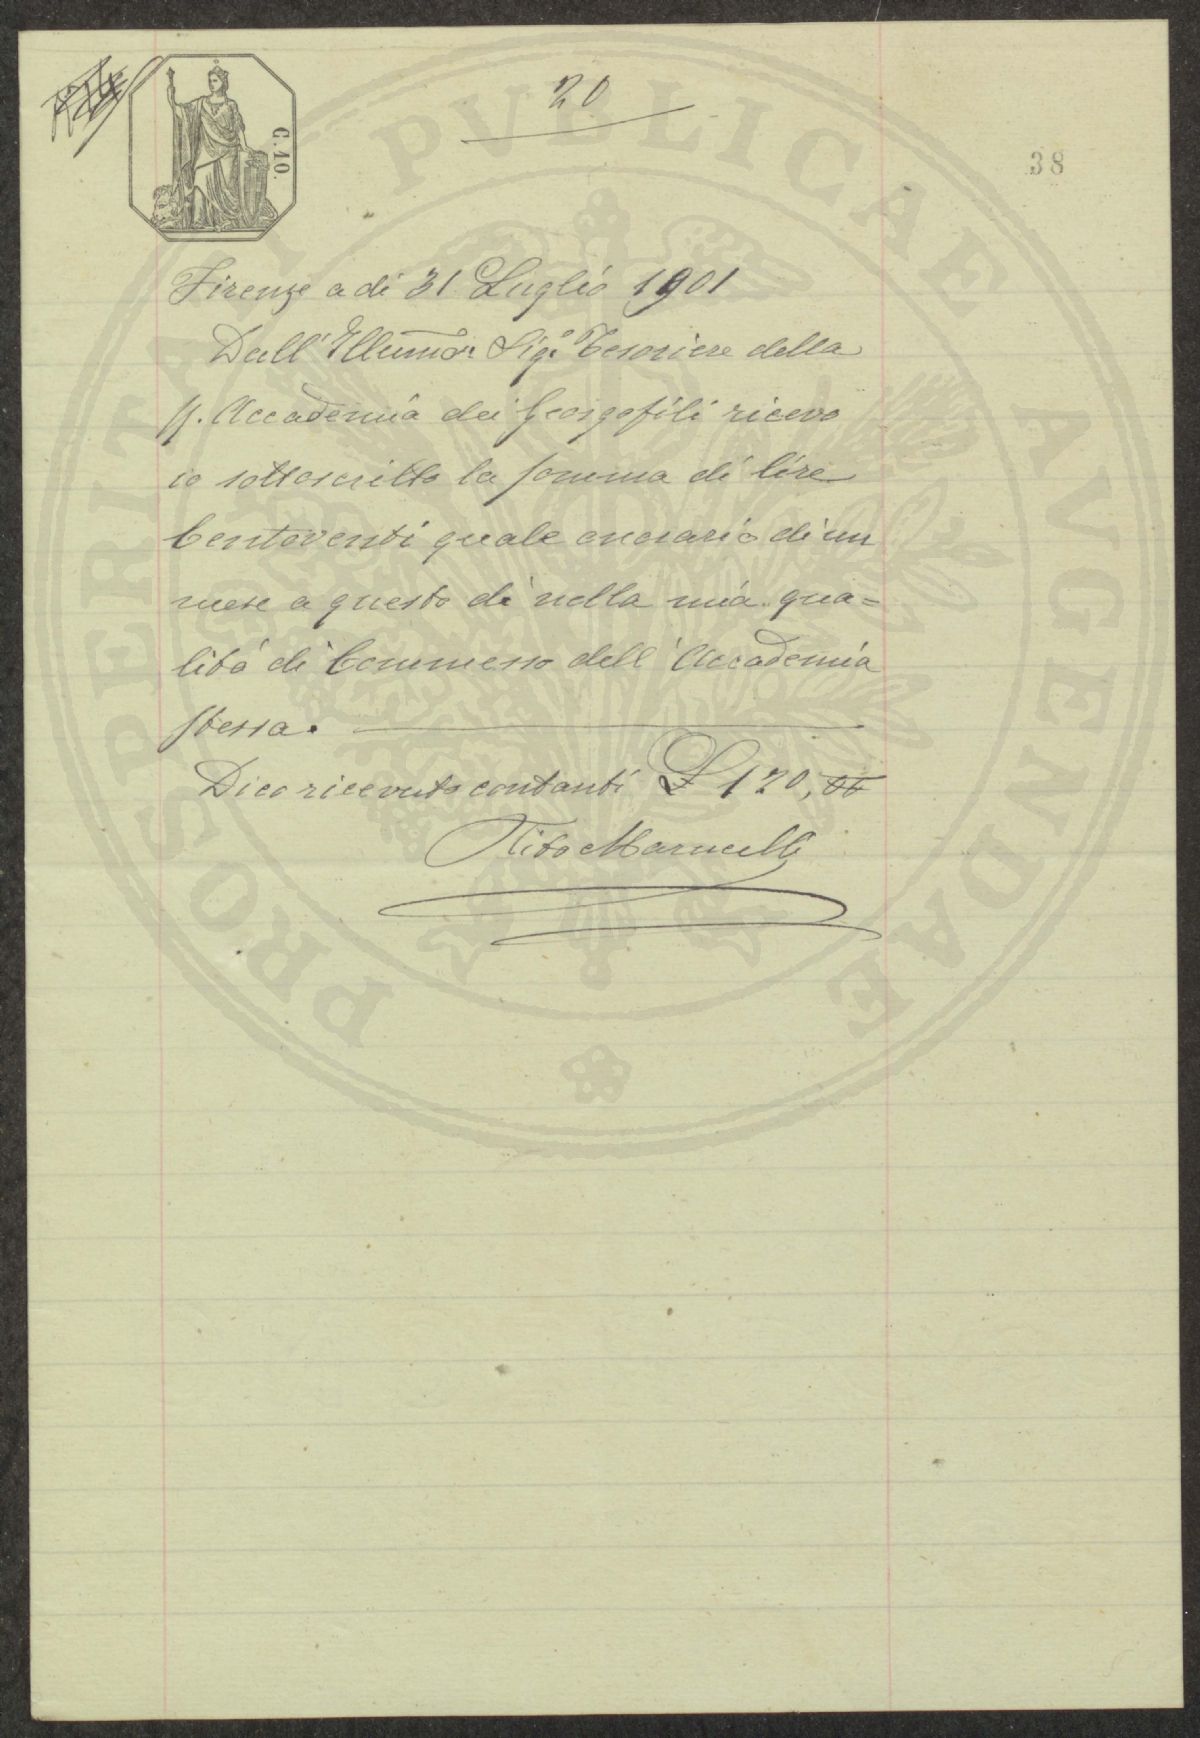 20
C. 10.
38
Firenze a dì 31 Luglio 1901
Dall' Illumo Sigr Tesoriere della
R. Accademia dei Georgofili ricevo
io sottoscritto la somma di lire
Centoventi quale onorario di un
mese a questo dì nella mia qua=
lità di Commesso dell' Accademia
stessa.
Dico ricevuto contanti £ 120, 00
Tito Marucelli
PROSPERITATI PVBLICAE AVGENDAE